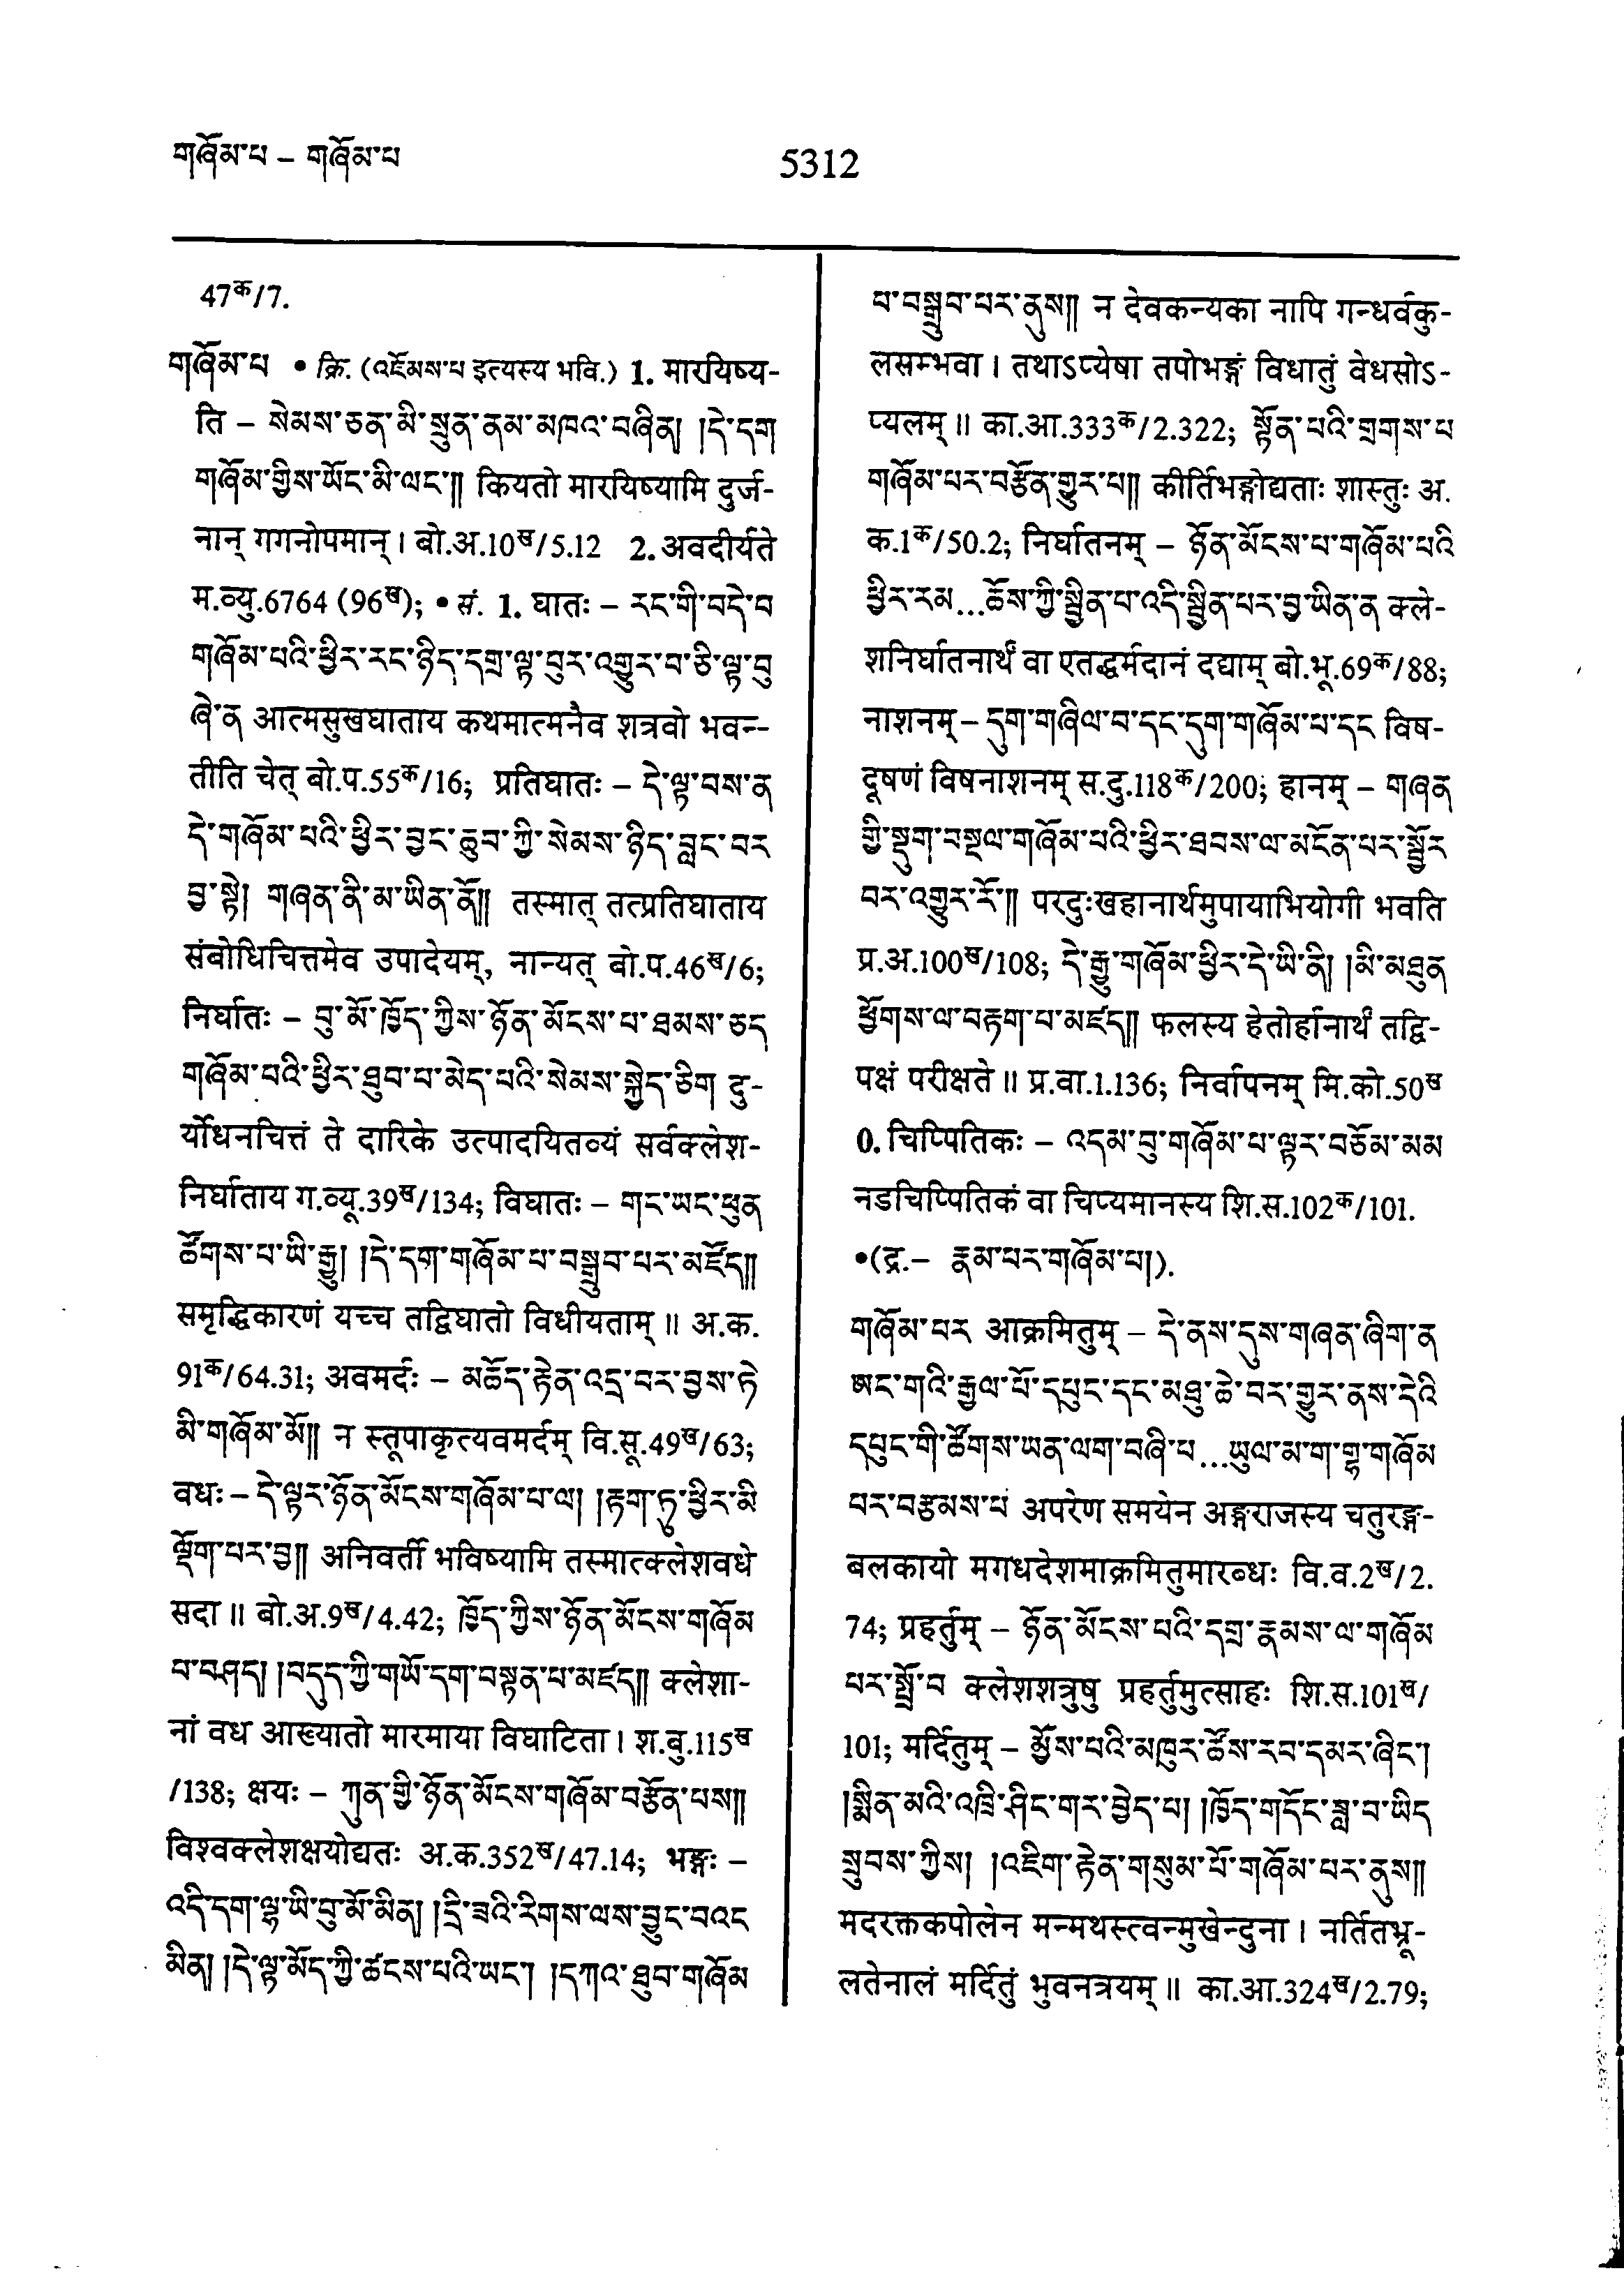 གཞོམ་པ – གཞོམ་པ
5312
47क/7.
གཞོམ་པ • क्रि. (འཇོམས་པ इत्यस्य भवि.) 1. मारयिष्य-
ति – སེམས་ཅན་མི་སྲུན་ནམ་མཁའ་བཞིན། །དེ་དག
གཞོམ་གྱིས་ཡོང་མི་ལང་།། कियतो मारयिष्यामि दुर्ज-
नान् गगनोपमान्। बो.अ.10ख/5.12 2. अवदीर्यते
म.व्यु.6764 (96ख); • सं. 1. घातः – རང་གི་བདེ་བ
གཞོམ་པའི་ཕྱིར་རང་ཉིད་དགྲ་ལྟ་བུར་འགྱུར་བ་ཅི་ལྟ་བུ
ཞེ་ན आत्मसुखघाताय कथमात्मनैव शत्रवो भवन्-
तीति चेत् बो.प.55क/16; प्रतिघातः – དེ་ལྟ་བས་ན
དེ་གཞོམ་པའི་ཕྱིར་བྱང་ཆུབ་ཀྱི་སེམས་ཉིད་བླང་བར
བྱ་སྟེ། གཞན་ནི་མ་ཡིན་ནོ།། तस्मात् तत्प्रतिघाताय
संबोधिचित्तमेव उपादेयम्, नान्यत् बो.प.46ख/6;
निर्घातः – བུ་མོ་ཁྱོད་ཀྱིས་ཉོན་མོངས་པ་ཐམས་ཅད
གཞོམ་པའི་ཕྱིར་ཐུབ་པ་མེད་པའི་སེམས་སྐྱེད་ཅིག दु-
र्योधनचित्तं ते दारिके उत्पादयितव्यं सर्वक्लेश-
निर्घाताय ग.व्यू.39ख/134; विघातः – གང་ཡང་ཕུན
ཚོགས་པ་ཡི་རྒྱུ། །དེ་དག་གཞོམ་པ་བསྒྲུབ་པར་མཛོད།།
समृद्धिकारणं यच्च तद्विघातो विधीयताम्॥ अ.क.
91क/64.31; अवमर्दः – མཆོད་རྟེན་འདྲ་བར་བྱས་ཏེ
མི་གཞོམ་མོ།། न स्तूपाकृत्यवमर्दम् वि.सू.49ख/63;
वधः – དེ་ལྟར་ཉོན་མོངས་གཞོམ་པ་ལ། །རྟག་ཏུ་ཕྱིར་མི
ལྡོག་པར་བྱ།། अनिवर्ती भविष्यामि तस्मात्क्लेशवधे
सदा॥ बो.अ.9ख/4.42; ཁྱོད་ཀྱིས་ཉོན་མོངས་གཞོམ
པ་བཤད། །བདུད་ཀྱི་གཡོ་དག་བསྟན་པ་མཛད།། क्लेशा-
नां वध आख्यातो मारमाया विघाटिता। श.बु.115ख
/138; क्षयः – ཀུན་གྱི་ཉོན་མོངས་གཞོམ་བརྩོན་པས།།
विश्वक्लेशक्षयोद्यतः अ.क.352ख/47.14; भङ्गः –
འདི་དག་ལྷ་ཡི་བུ་མོ་མིན། །དྲི་ཟའི་རིགས་ལས་བྱུང་བའང
མིན། །དེ་ལྟ་མོད་ཀྱི་ཚངས་པའི་ཡང་། །དཀའ་ཐུབ་གཞོམ
པ་བསྒྲུབ་པར་ནུས།། न देवकन्यका नापि गन्धर्वकु-
लसम्भवा। तथाऽप्येषा तपोभङ्गं विधातुं वेधसोऽ-
प्यलम्॥ का.आ.333क/2.322; སྟོན་པའི་གྲགས་པ
གཞོམ་པར་བརྩོན་གྱུར་པ།། कीर्तिभङ्गोद्यताः शास्तुः अ.
क.1क/50.2; निर्घातनम् – ཉོན་མོངས་པ་གཞོམ་པའི
ཕྱིར་རམ...ཆོས་ཀྱི་སྦྱིན་པ་འདི་སྦྱིན་པར་བྱ་ཡིན་ན क्ले-
शनिर्घातनार्थं वा एतद्धर्मदानं दद्याम् बो.भू.69क/88;
नाशनम् – དུག་གཞིལ་བ་དང་དུག་གཞོམ་པ་དང विष-
दूषणं विषनाशनम् स.दु.118क/200; हानम् – གཞན
གྱི་སྡུག་བསྔལ་གཞོམ་པའི་ཕྱིར་ཐབས་ལ་མངོན་པར་སྦྱོར
བར་འགྱུར་རོ་།། परदुःखहानार्थमुपायाभियोगी भवति
प्र.अ.100ख/108; དེ་རྒྱུ་གཞོམ་ཕྱིར་དེ་ཡི་ནི། །མི་མཐུན
ཕྱོགས་ལ་བརྟག་པ་མཛད།། फलस्य हेतोर्हानार्थं तद्वि-
पक्षं परीक्षते॥ प्र.वा.1.136; निर्वापनम् मि.को.50ख
0. चिप्पितिकः – འདམ་བུ་གཞོམ་པ་ལྟར་བཅོམ་མམ
नडचिप्पितिकं वा चिप्यमानस्य शि.स.102क/101.
•(द्र.– རྣམ་པར་གཞོམ་པ།).
གཞོམ་པར आक्रमितुम् – དེ་ནས་དུས་གཞན་ཞིག་ན
ཨང་གའི་རྒྱལ་པོ་དཔུང་དང་མཐུ་ཆེ་བར་གྱུར་ནས་དེའི
དཔུང་གི་ཚོགས་ཡན་ལག་བཞི་པ...ཡུལ་མ་ག་དྷ་གཞོམ
པར་བརྩམས་པ अपरेण समयेन अङ्गराजस्य चतुरङ्ग-
बलकायो मगधदेशमाक्रमितुमारब्धः वि.व.2ख/2.
74; प्रहर्तुम् – ཉོན་མོངས་པའི་དགྲ་རྣམས་ལ་གཞོམ
པར་སྤྲོ་བ क्लेशशत्रुषु प्रहर्तुमुत्साहः शि.स.101ख/
101; मर्दितुम् – མྱོས་པའི་མཁུར་ཚོས་རབ་དམར་ཞིང་།
།སྨིན་མའི་འཁྲི་ཤིང་གར་བྱེད་པ། །ཁྱོད་གདོང་ཟླ་བ་ཡིད
སྲུབས་ཀྱིས། །འཇིག་རྟེན་གསུམ་པོ་གཞོམ་པར་ནུས།།
मदरक्तकपोलेन मन्मथस्त्वन्मुखेन्दुना। नर्तितभ्रू-
लतेनालं मर्दितुं भुवनत्रयम्॥ का.आ.324ख/2.79;